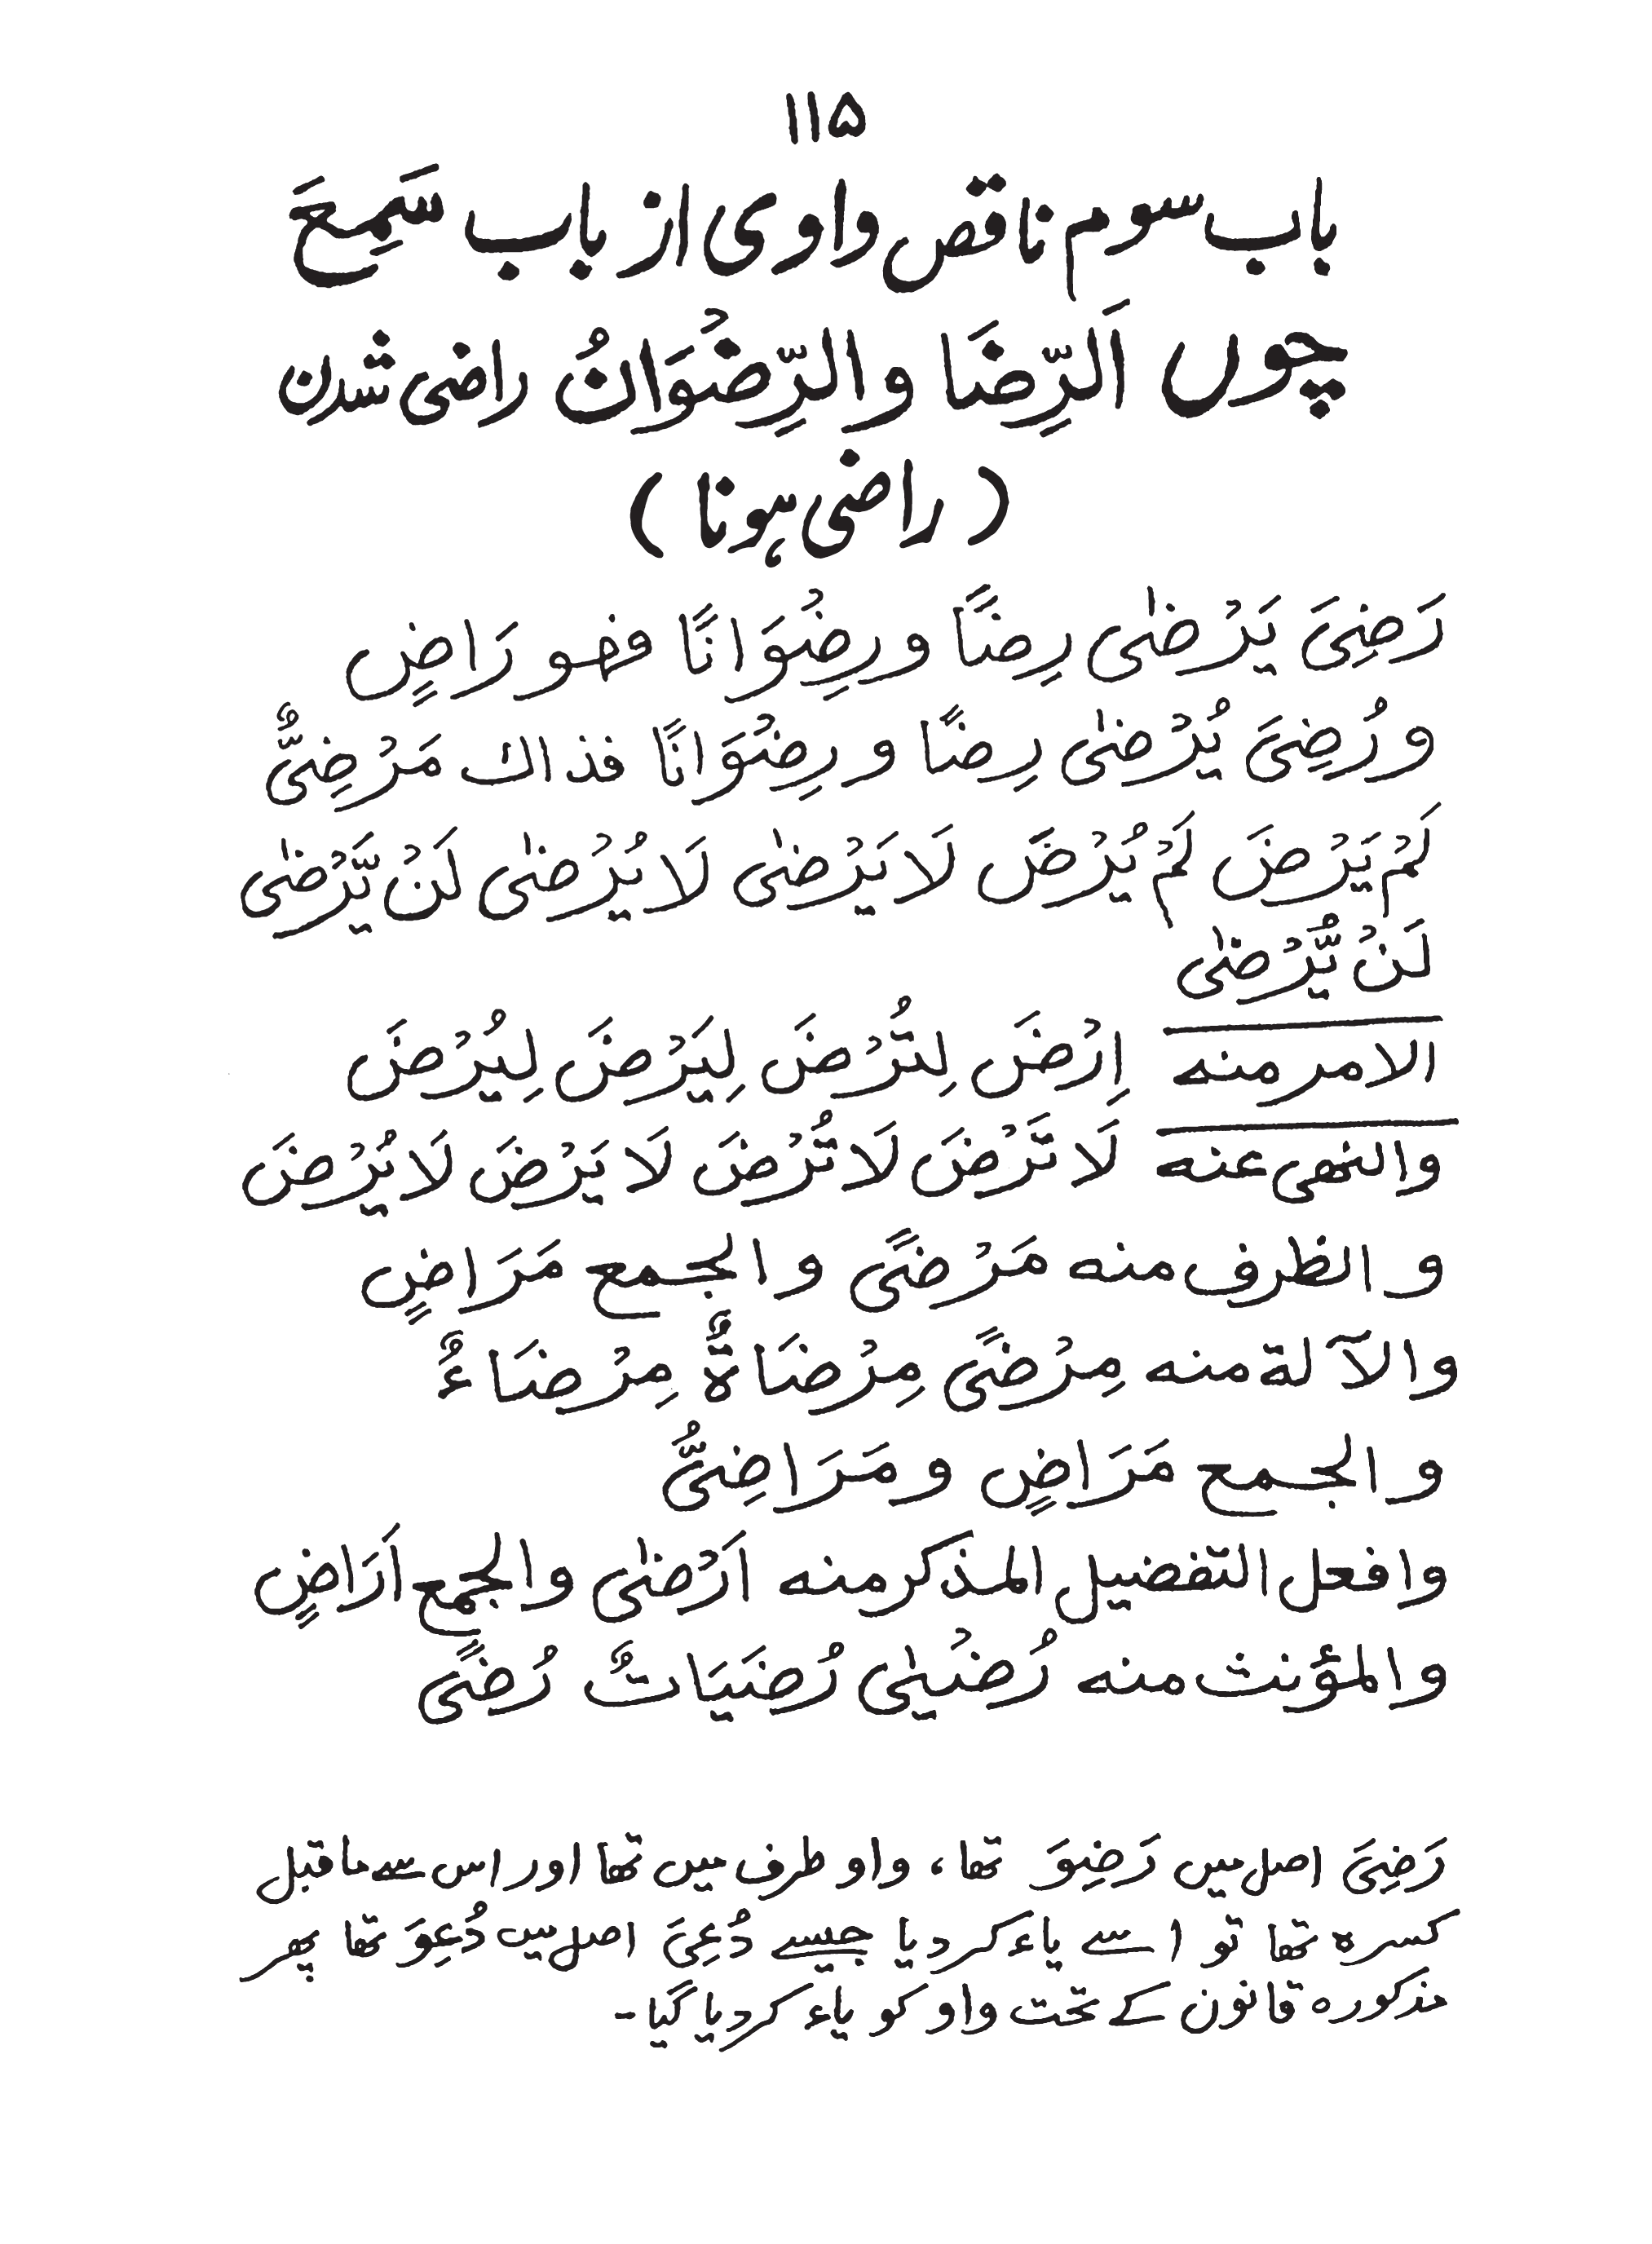 ۱۱۵
باب سوم ناقص واوی از باب سَمِعَ
چوں اَلرِّضَا والرِّضْوَانُ راضی شدن
(راضی ہونا)
رَضِیَ یَرْضٰی رِضًا ورِضْوَانًا فهو رَاضٍ
ورُضِیَ یُرْضٰی رِضًا و رِضْوَانًا فذاك مَرْضِیٌّ
لَمْ یَرْضَ لَمْ یُرْضَ لَا یَرْضٰی لَا یُرْضٰی لَنْ یَّرْضٰی
لَنْ یُّرْضٰی
الامر منه اِرْضَ لِتُرْضَ لِیَرْضَ لِیُرْضَ
والنهی عنه لَا تَرْضَ لَا تُرْضَ لَا یَرْضَ لَا یُرْضَ
و الظرف منه مَرْضًی والجمع مَرَاضٍ
والآلة منه مِرْضًی مِرْضَاةٌ مِرْضَاءٌ
و الجمع مَرَاضٍ و مَرَاضِیُّ
وافعل التفضیل المذکر منه اَرْضٰی والجمع اَرَاضٍ
والمؤنث منه رُضْیٰی رُضَیَاتٌ رُضًی
رَضِیَ اصل میں رَضِوَ تھا، واو طرف میں تھا اور اس سے ماقبل
کسرہ تھا تو اسے یاء کر دیا جیسے دُعِیَ اصل میں دُعِوَ تھا پھر
مذکورہ قانون کے تحت واو کو یاء کر دیا گیا۔